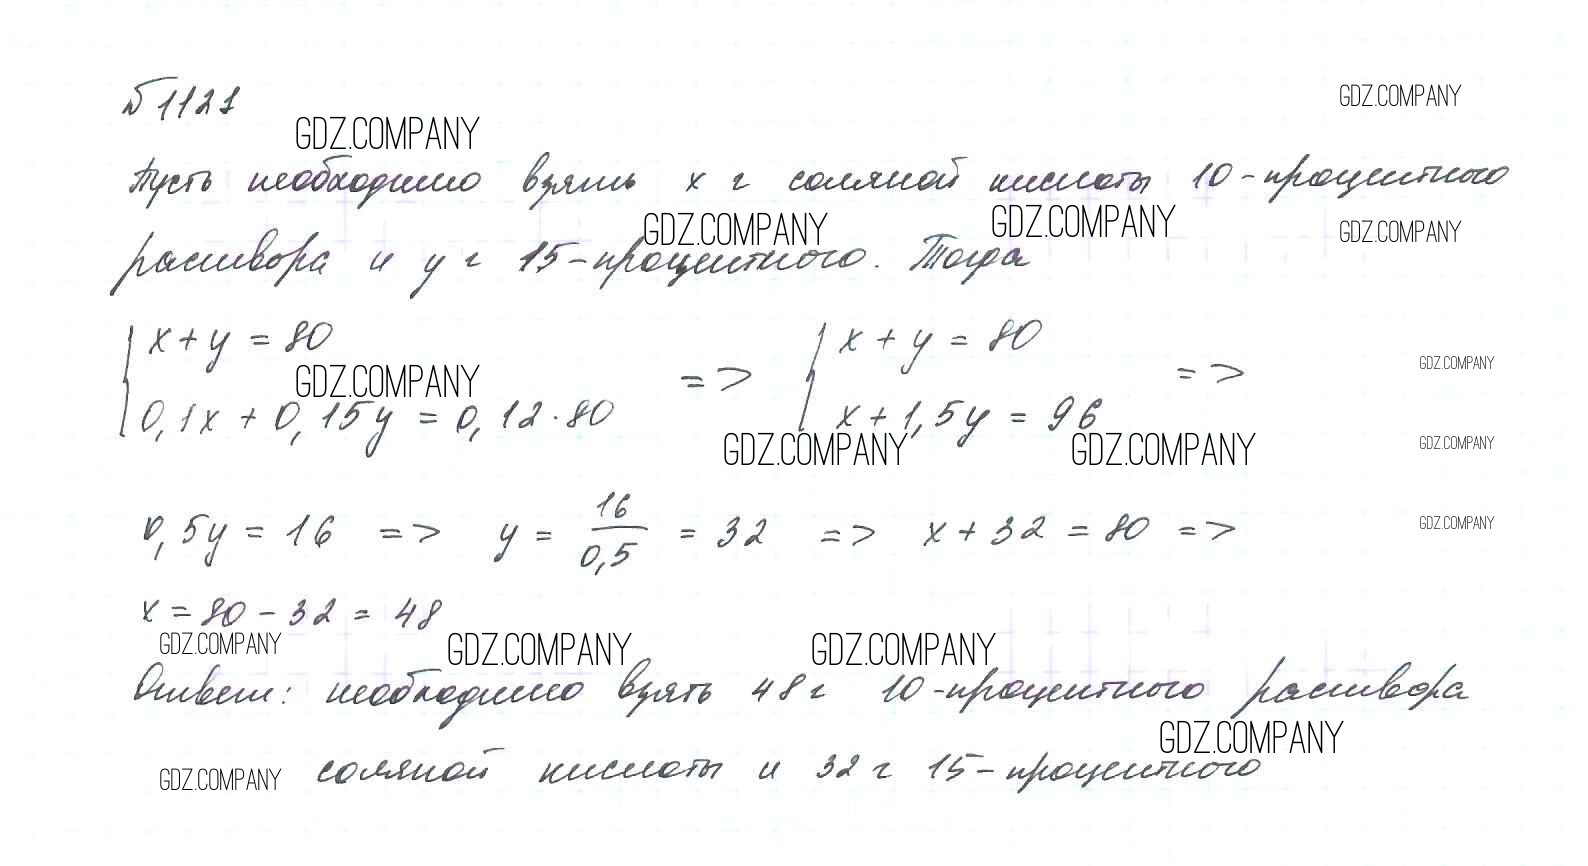 № 1121
GDZ.COMPANY
GDZ.COMPANY
Пусть необходимо взять x г соляной кислоты 10-процентного
GDZ.COMPANY GDZ.COMPANY GDZ.COMPANY
раствора и y г 15-процентного. Тогда
{ x + y = 80 => { x + y = 80 =>
GDZ.COMPANY GDZ.COMPANY
0,1x + 0,15y = 0,12 · 80 x + 1,5y = 96
GDZ.COMPANY GDZ.COMPANY GDZ.COMPANY
0,5y = 16 => y = 16/0,5 = 32 => x + 32 = 80 =>
GDZ.COMPANY
x = 80 - 32 = 48
GDZ.COMPANY GDZ.COMPANY GDZ.COMPANY
Ответ: необходимо взять 48 г 10-процентного раствора
GDZ.COMPANY
соляной кислоты и 32 г 15-процентного
GDZ.COMPANY